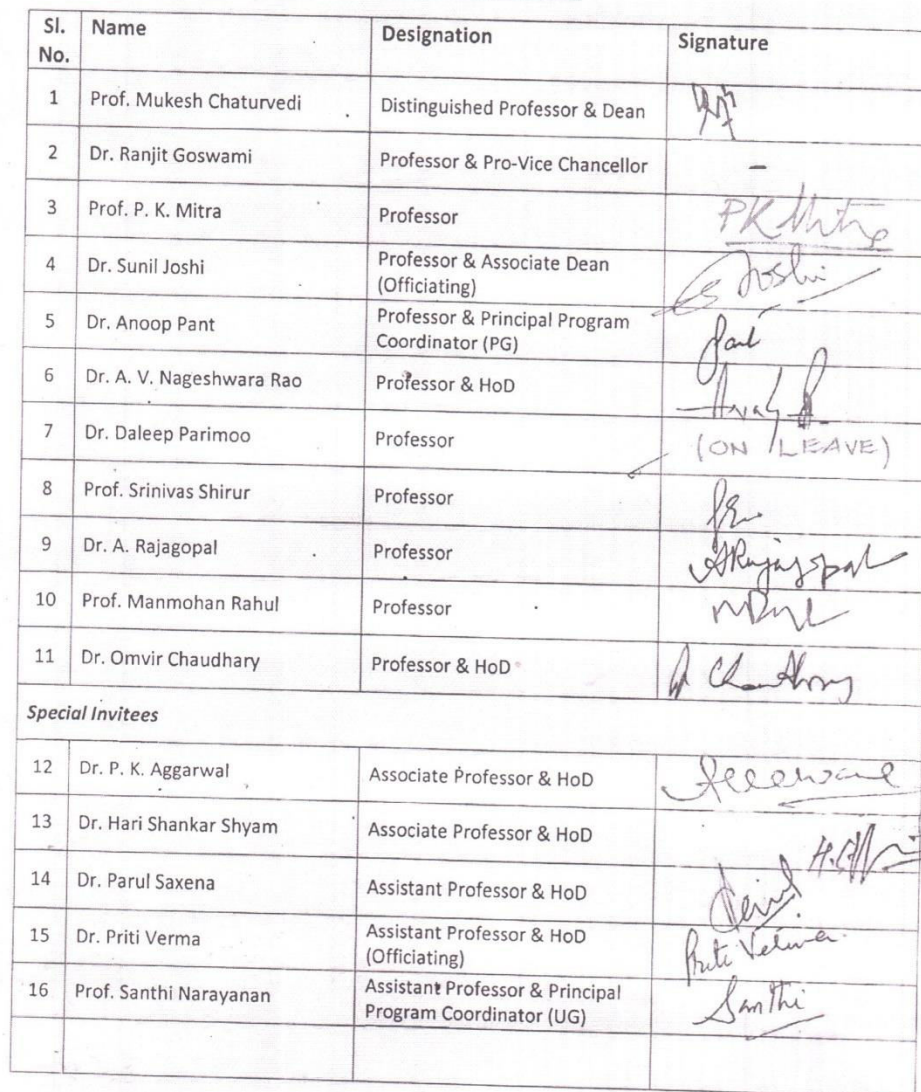 Sl. No. Name Designation Signature
1 Prof. Mukesh Chaturvedi Distinguished Professor & Dean
2 Dr. Ranjit Goswami Professor & Pro-Vice Chancellor -
3 Prof. P. K. Mitra Professor PK Mitra
4 Dr. Sunil Joshi Professor & Associate Dean (Officiating) Joshi
5 Dr. Anoop Pant Professor & Principal Program Coordinator (PG) Pant
6 Dr. A. V. Nageshwara Rao Professor & HoD
7 Dr. Daleep Parimoo Professor (ON LEAVE)
8 Prof. Srinivas Shirur Professor
9 Dr. A. Rajagopal Professor ARajagopal
10 Prof. Manmohan Rahul Professor
11 Dr. Omvir Chaudhary Professor & HoD
Special Invitees
12 Dr. P. K. Aggarwal Associate Professor & HoD
13 Dr. Hari Shankar Shyam Associate Professor & HoD
14 Dr. Parul Saxena Assistant Professor & HoD
15 Dr. Priti Verma Assistant Professor & HoD (Officiating) Priti Verma
16 Prof. Santhi Narayanan Assistant Professor & Principal Program Coordinator (UG) Santhi